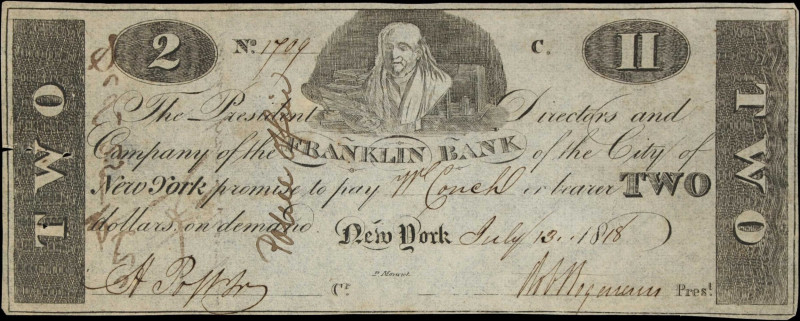 2 No. 1709 C. II
TWO
The President Directors and
Company of the FRANKLIN BANK of the City of
New York promise to pay Wm Couch or bearer TWO
dollars on demand. New York July 13. 1818
P. Maverick
A Post Jr Cr. Prest.
TWO
Police Office